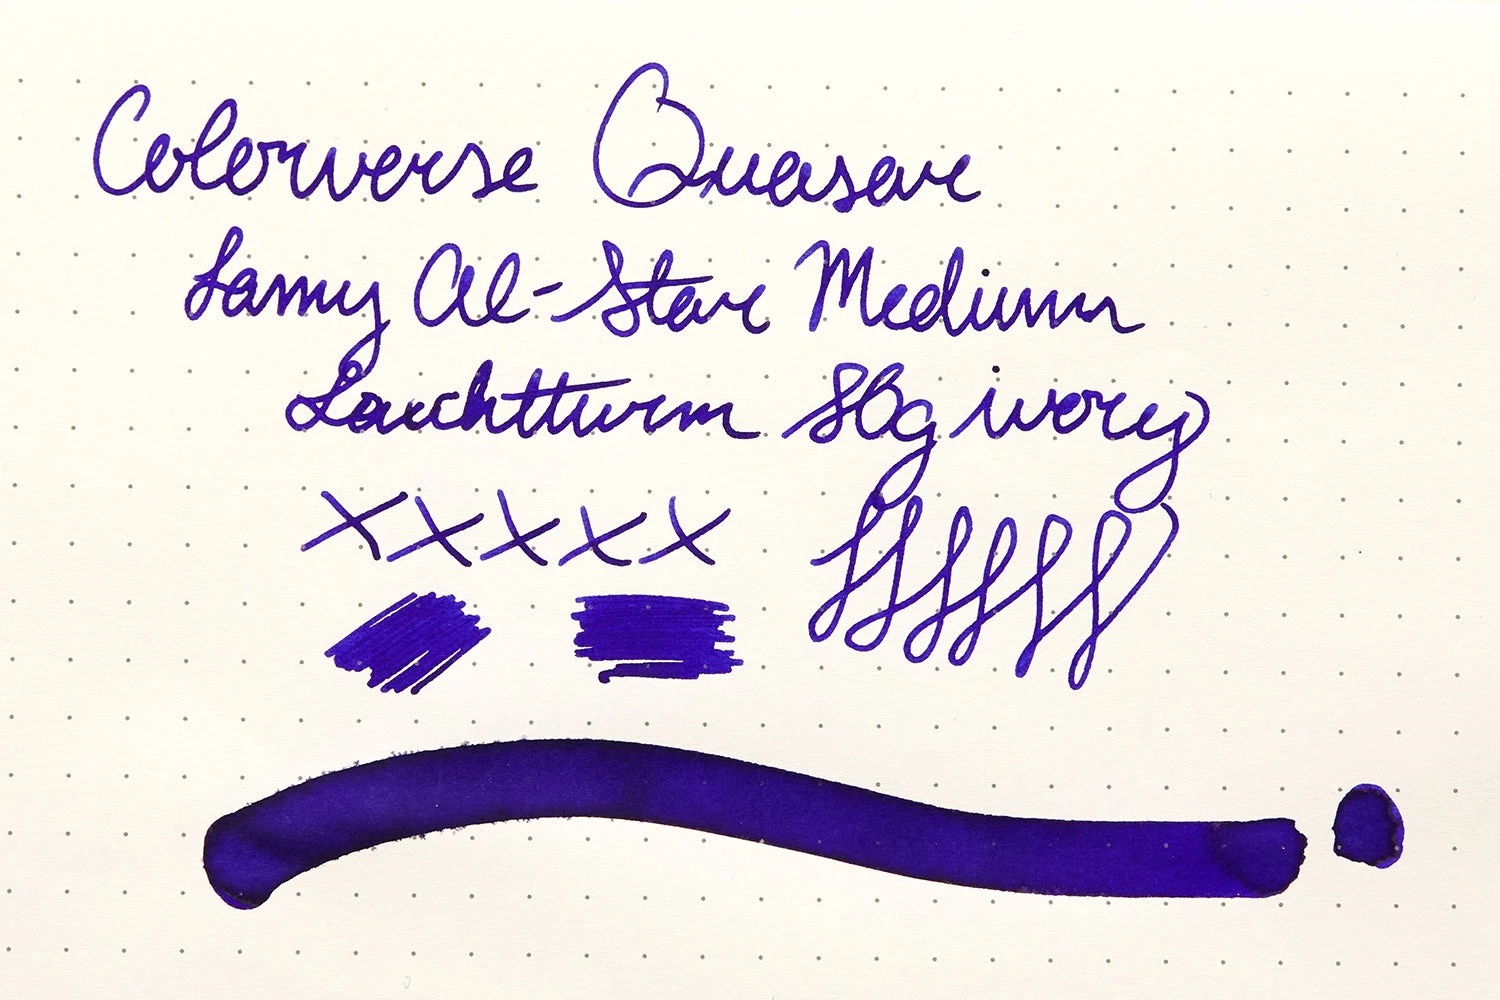 Colorverse Quasar
Lamy Al-Star Medium
Leuchtturm 80g ivory
X X X X X